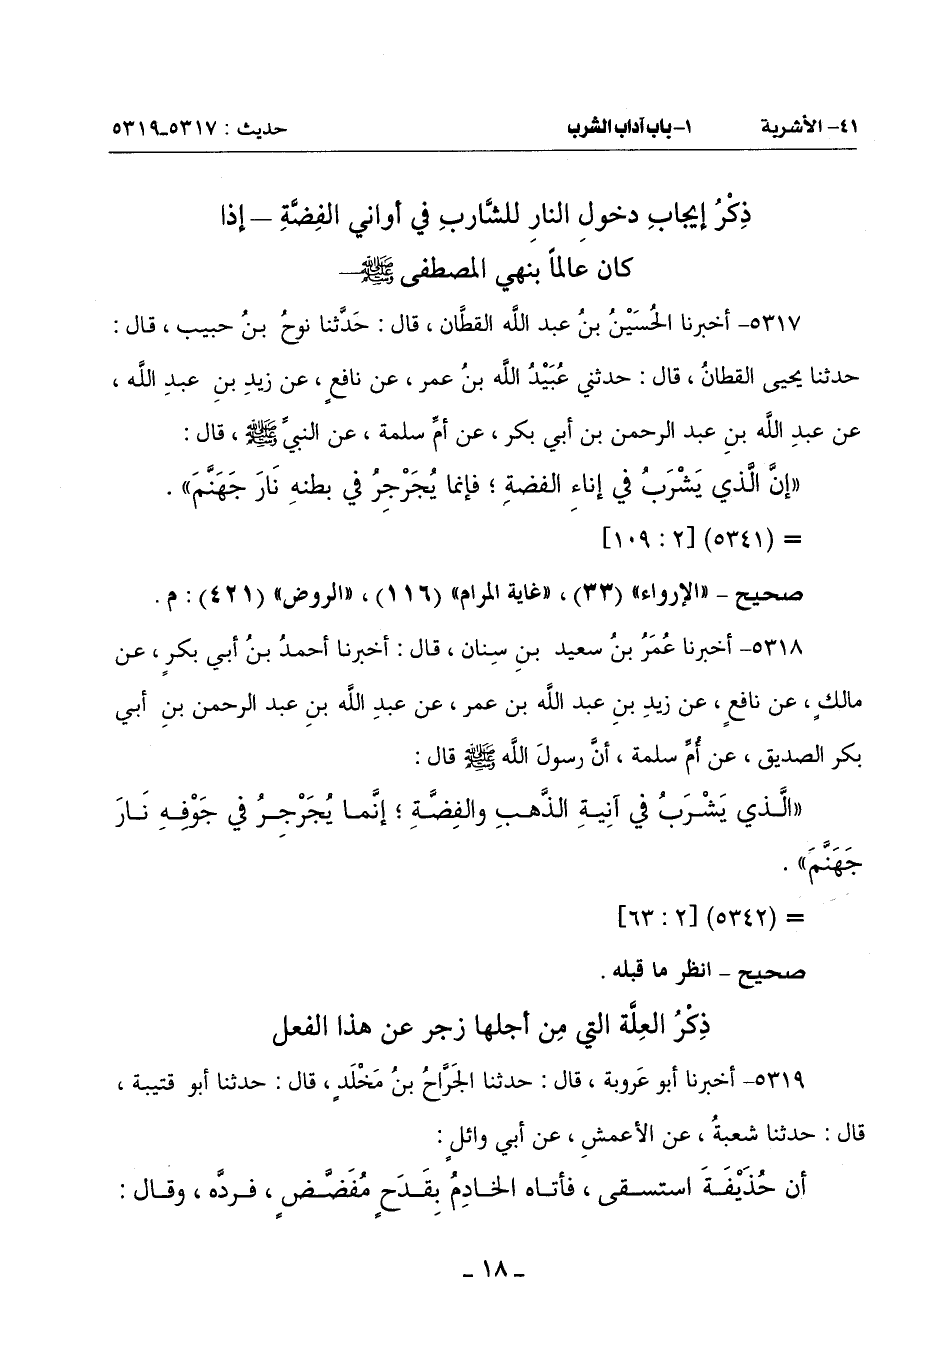 ٤١- الأشربة ١- باب آداب الشرب حديث : ٥٣١٧-٥٣١٩
ذِكْرُ إيجابِ دخولِ النارِ للشَّاربِ في أواني الفِضَّةِ – إذا
كان عالماً بنهي المصطفى ﷺ –
٥٣١٧- أخبرنا الحُسَيْنُ بنُ عبد الله القطَّان ، قال : حَدَّثنا نوحُ بنُ حبيب ، قال :
حدثنا يحيى القطانُ ، قال : حدثني عُبَيْدُ اللَّه بنُ عمر ، عن نافعٍ ، عن زيدِ بنِ عبدِ اللَّه ،
عن عبدِ اللَّه بنِ عبد الرحمن بن أبي بكر ، عن أمِّ سلمة ، عن النبيِّ ﷺ ، قال :
«إنَّ الَّذي يَشْرَبُ في إناءِ الفضةِ ؛ فإنما يُجَرْجِرُ في بطنهِ نَارَ جَهَنَّمَ» .
= (٥٣٤١) [٢ : ١٠٩]
صحيح – «الإرواء» (٣٣) ، «غاية المرام» (١١٦) ، «الروض» (٤٢١) : م .
٥٣١٨- أخبرنا عُمَرُ بنُ سعيد بنِ سِنان ، قال : أخبرنا أحمدُ بنُ أبي بكرٍ ، عن
مالكٍ ، عن نافعٍ ، عن زيدِ بنِ عبد اللَّه بن عمر ، عن عبدِ اللَّه بنِ عبد الرحمن بنِ أبي
بكر الصديق ، عن أُمِّ سلمة ، أنَّ رسولَ الله ﷺ قال :
«الَّـذي يَشْـرَبُ في آنِيـةِ الذَّهـبِ والفِضَّـةِ ؛ إنَّمـا يُجَرْجِـرُ في جَوْفِـهِ نَـارَ
جَهَنَّمَ» .
= (٥٣٤٢) [٢ : ٦٣]
صحيح – انظر ما قبله .
ذِكْرُ العِلَّة التي مِن أجلها زجر عن هذا الفعل
٥٣١٩- أخبرنا أبو عَروبة ، قال : حدثنا الجَرَّاحُ بنُ مَخْلَدٍ ، قال : حدثنا أبو قتيبة ،
قال : حدثنا شعبةُ ، عن الأعمش ، عن أبي وائلٍ :
أن حُذَيْفَـةَ استسـقى ، فأتـاه الخـادِمُ بِقَـدَحٍ مُفَضَّـضٍ ، فـردَّه ، وقـال :
- ١٨ -